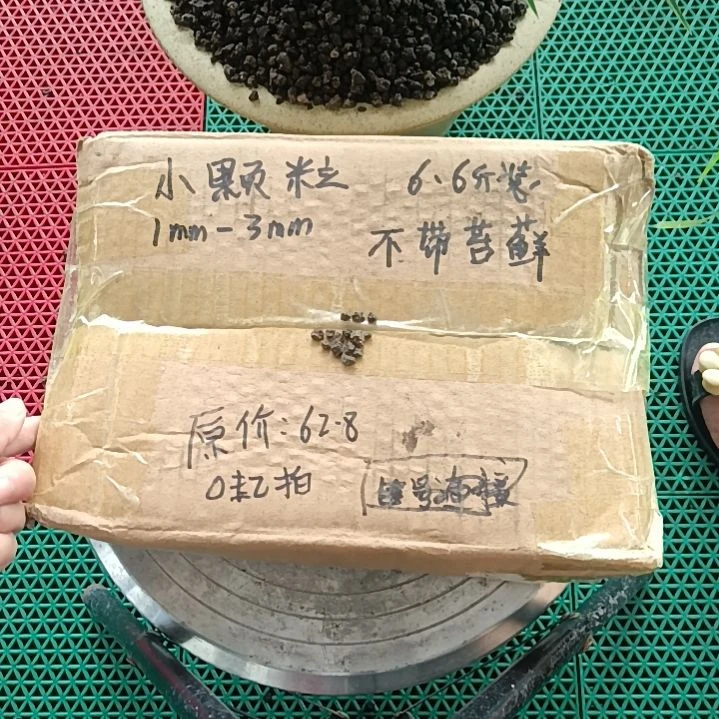 小颗粒 6.6斤装
1mm-3mm 不带苔藓
原价:62.8
0元拍